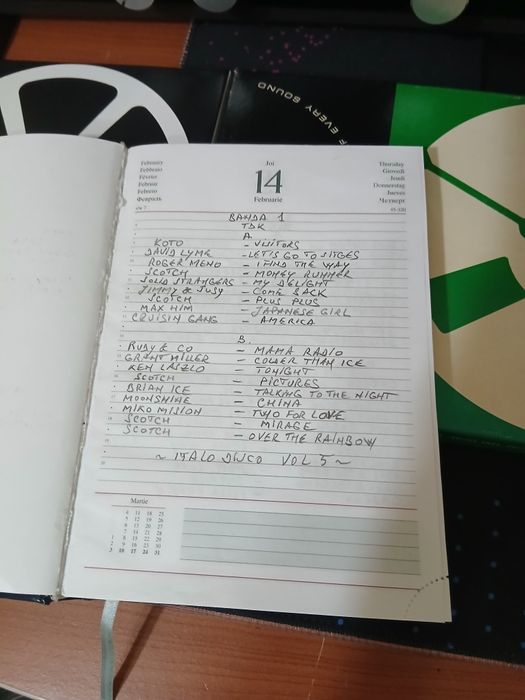 F EVERY SOUND
February
Febbraio
Février
Februar
Febrero
Февраль
Joi
14
Februarie
Thursday
Giovedì
Jeudi
Donnerstag
Jueves
Четверг
45-320
BANDA 1
TDK
A.
KOTO - VISITORS
DAVID LYME - LET'S GO TO SITGES
ROGER MENO - I FIND THE WAY
SCOTCH - MONEY RUNNER
SOLID STRANGERS - MY DELIGHT
JIMMY & SUSY - COME BACK
SCOTCH - PLUS PLUS
MAX HIM - JAPANESE GIRL
CRUISIN GANG - AMERICA
B.
RUBY & CO - MAMA RADIO
GRANT MILLER - COLDER THAN ICE
KEN LASZLO - TONIGHT
SCOTCH - PICTURES
BRIAN ICE - TALKING TO THE NIGHT
MOONSHINE - CHINA
MIKO MISION - TWO FOR LOVE
SCOTCH - MIRAGE
SCOTCH - OVER THE RAINBOW
~ ITALO DISCO VOL 5 ~
Martie
4 11 18 25
5 12 19 26
6 13 20 27
7 14 21 28
1 8 15 22 29
2 9 16 23 30
3 10 17 24 31